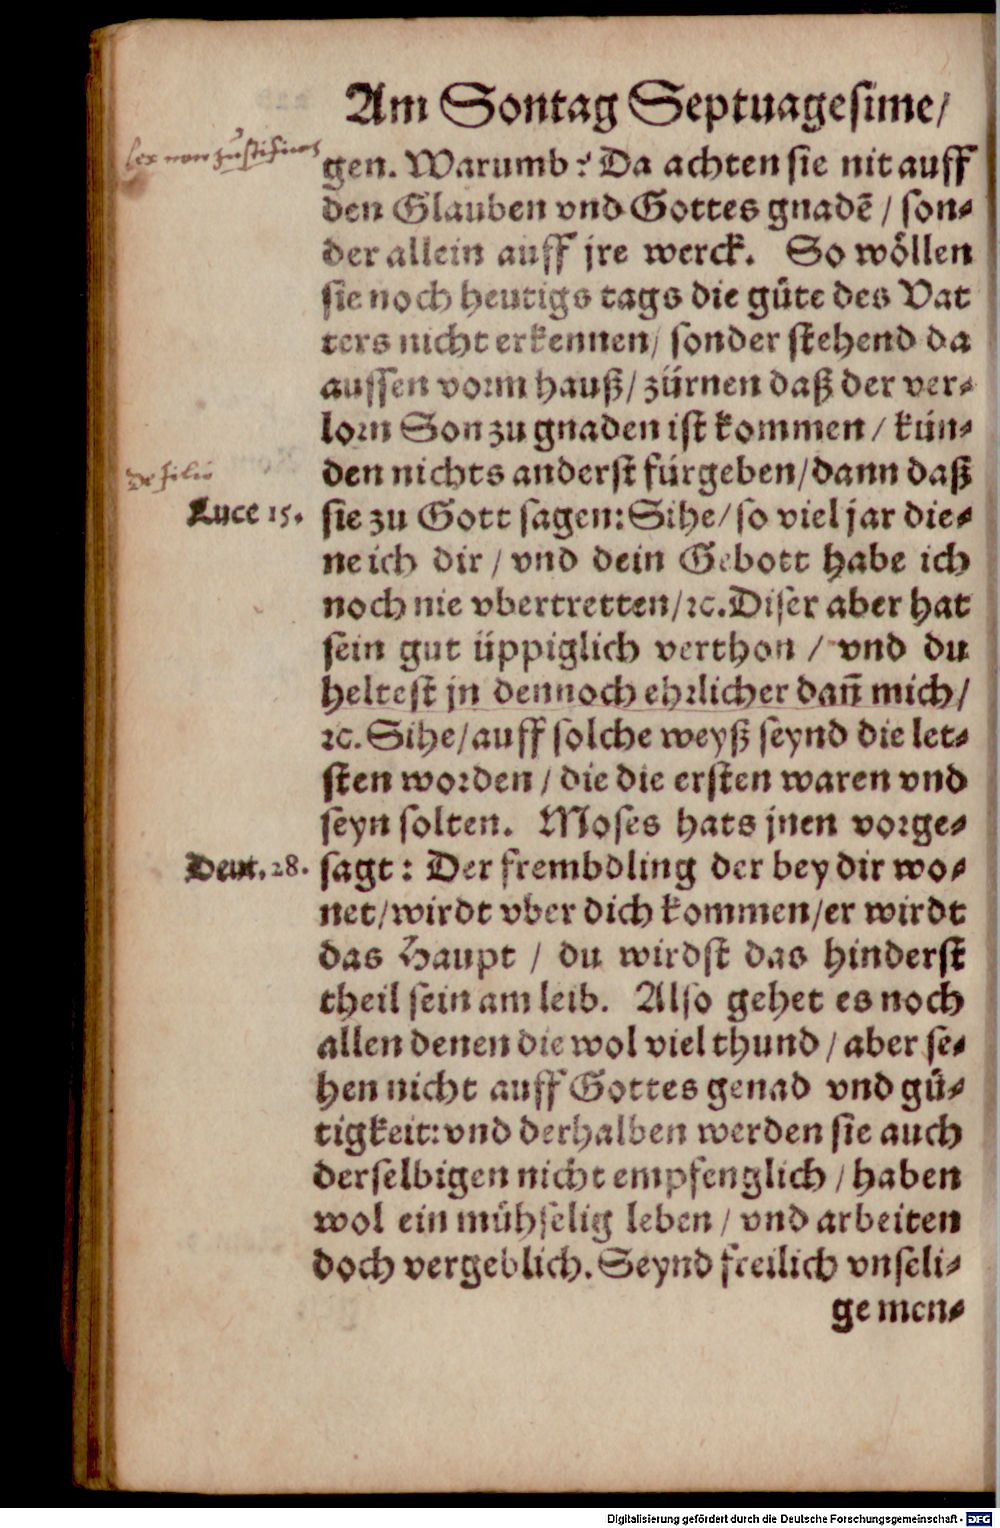 Am Sontag Septuagesime/
lex non justificat
gen. Warumb? Da achten sie nit auff
den Glauben vnd Gottes gnadē / son⸗
der allein auff jre werck. So woͤllen
sie noch heutigs tags die guͤte des Vat
ters nicht erkennen/ sonder stehend da
aussen vorm hauß/ zürnen daß der ver⸗
lorn Son zu gnaden ist kommen / kün⸗
den nichts anderst fürgeben/dann daß
de filio
Luce 15.
sie zu Gott sagen: Sihe/ so viel jar die⸗
ne ich dir / vnd dein Gebott habe ich
noch nie vbertretten/ ꝛc. Diser aber hat
sein gut üppiglich verthon / vnd du
heltest jn dennoch ehrlicher dañ mich/
ꝛc. Sihe/ auff solche weyß seynd die let⸗
sten worden / die die ersten waren vnd
seyn solten. Moses hats jnen vorge⸗
Deut. 28.
sagt: Der frembdling der bey dir wo⸗
net/ wirdt vber dich kommen/er wirdt
das Haupt / du wirdst das hinderst
theil sein am leib. Also gehet es noch
allen denen die wol viel thund / aber se⸗
hen nicht auff Gottes genad vnd guͤ⸗
tigkeit: vnd derhalben werden sie auch
derselbigen nicht empfenglich / haben
wol ein muͤhselig leben / vnd arbeiten
doch vergeblich. Seynd freilich vnseli⸗
ge men⸗
Digitalisierung gefördert durch die Deutsche Forschungsgemeinschaft - DFG